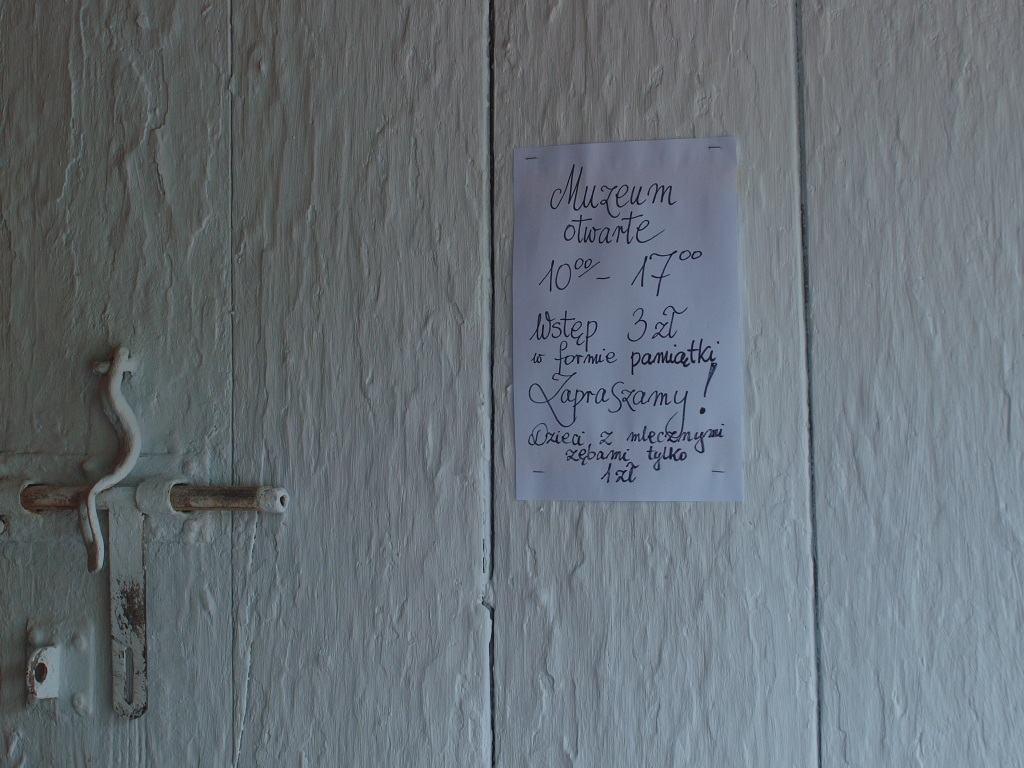 Muzeum
otwarte
10⁰⁰ - 17⁰⁰
Wstęp 3 zł
w formie pamiątki
Zapraszamy!
Dzieci z mlecznymi
zębami tylko
1 zł